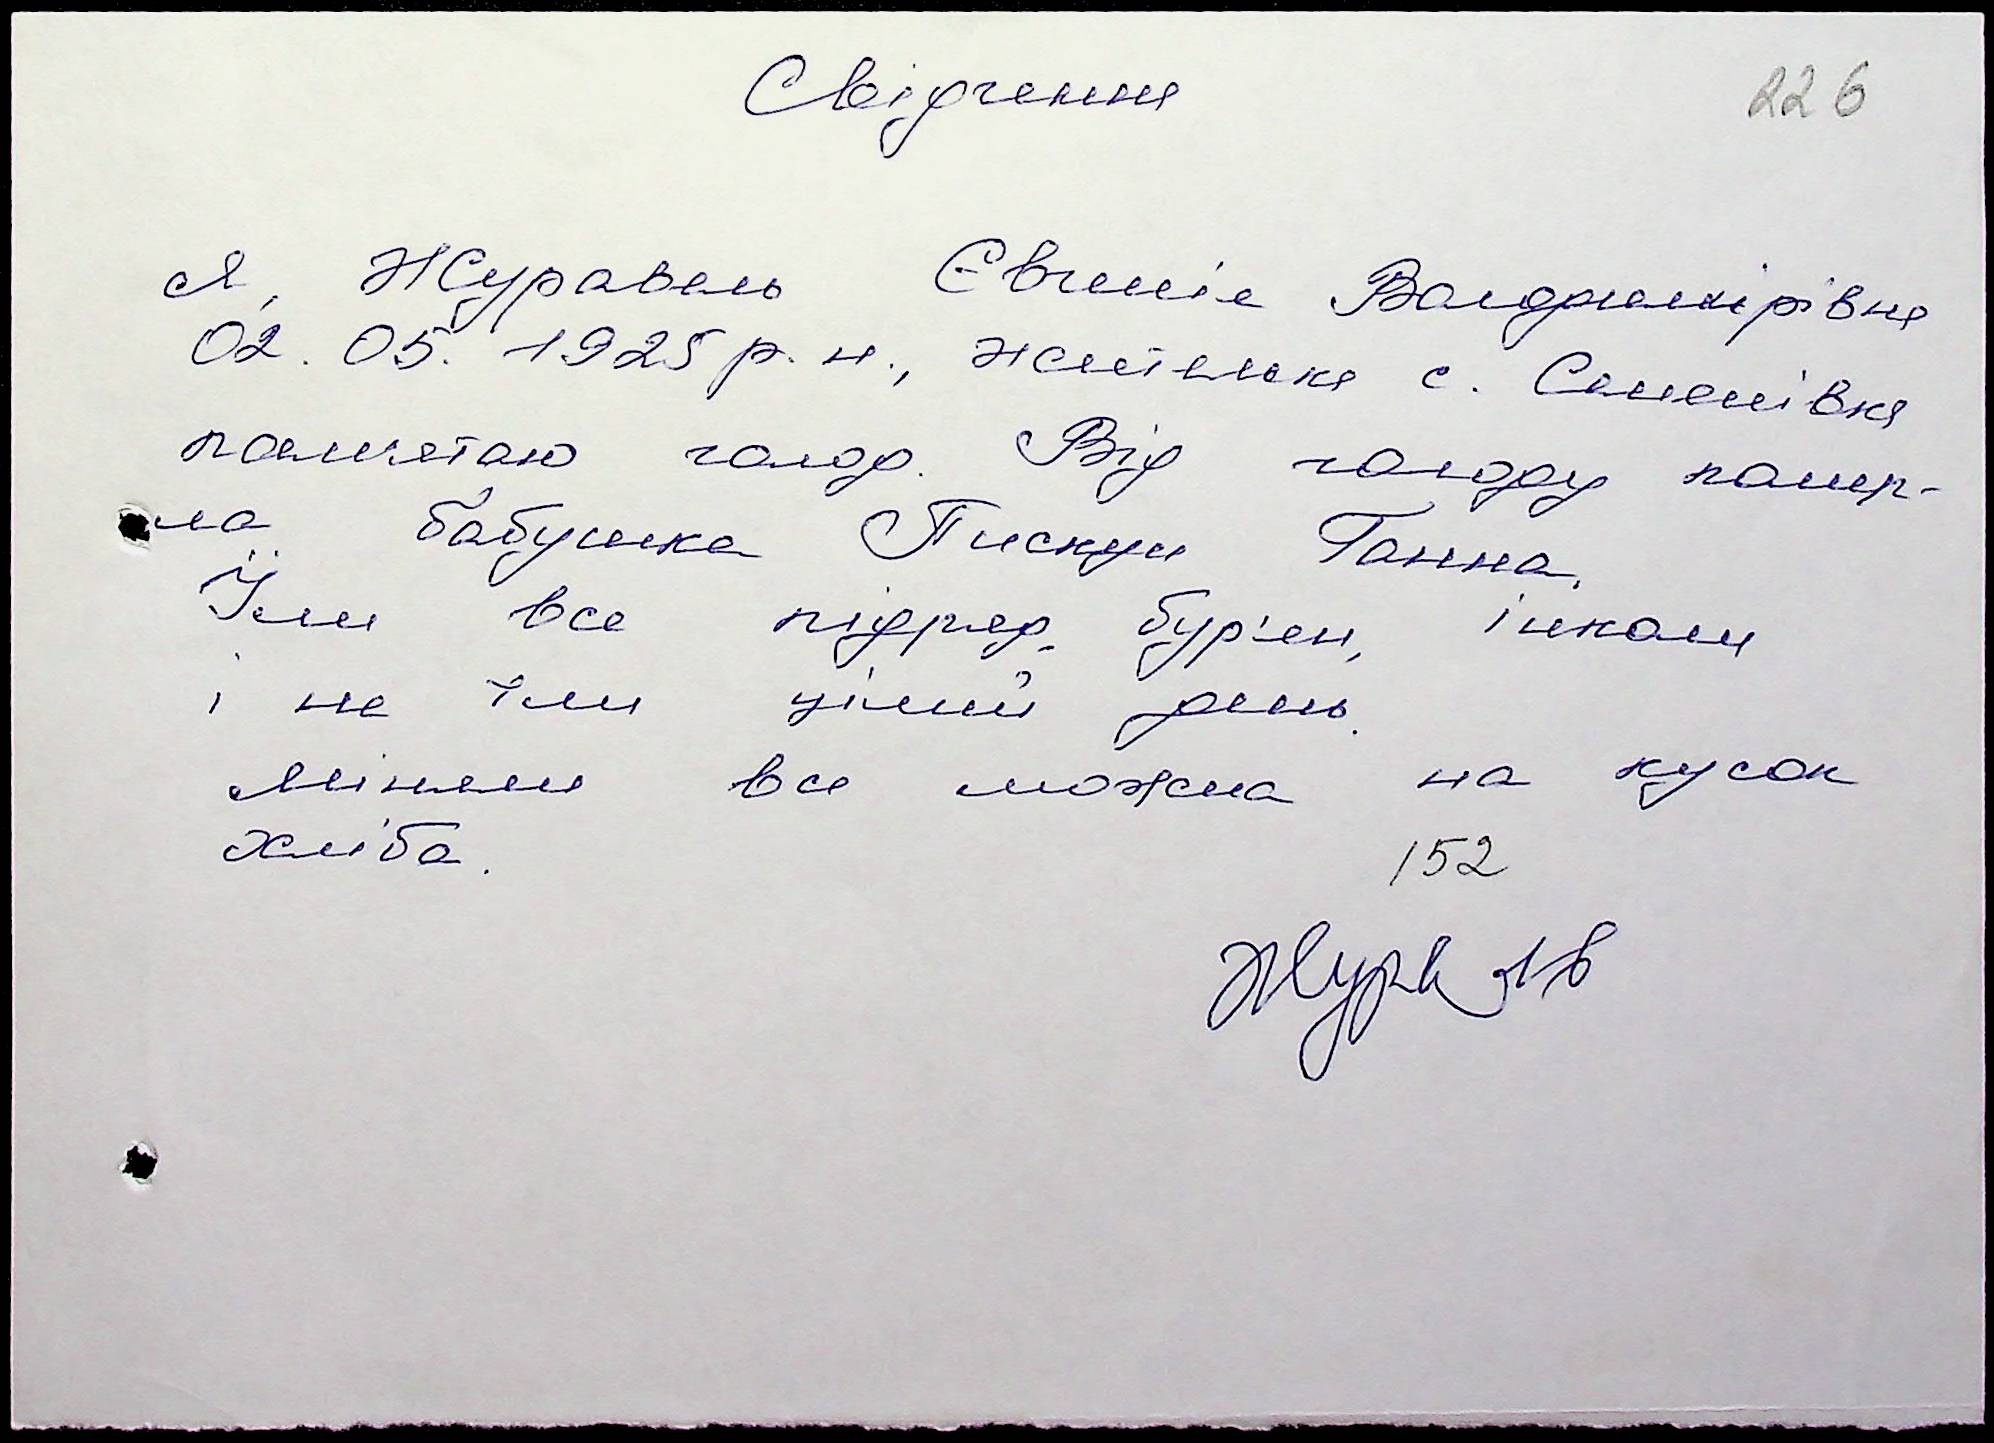 Свідчення
226
Я, Журавель Євгенія Валдимирівна
02.05.1925 р.н., жителька с. Семенівка
пам'ятаю голод. Від голоду помер-
ла бабушка Пискун Ганна.
Їли все підряд, бур'ян, інколи
і не їли цілий день.
Міняли все можна на кусок
хліба.
152